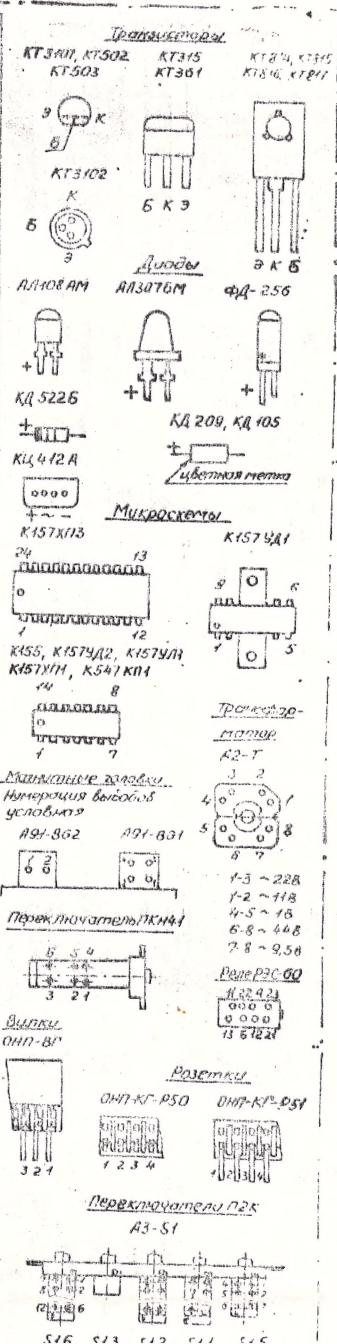 Транзисторы
КТ3107, КТ502 КТ315 КТ814, КТ815
КТ503 КТ361 КТ816, КТ817
Э К
Б
Б К Э
КТ3102
К
Б
Э
Э К Б
Диоды
АЛ108АМ АЛ307БМ ФД-256
+ + +
КД522Б
КД 209, КД 105
+ +
КЦ412А
цветная метка
+ ~ ~ -
Микросхемы
К157ХП3 К157УД1
24 13
9 6
1 12
1 5
К155, К157УД2, К157УЛ1
К547КП1
14 8
1 7
Трансфор-
матор
А2-Т
3 2
4 1
5 8
6 7
Магнитные головки
Нумерация выводов
условная
А91-ВG2 А91-ВG1
1 2
1-3 ~ 22В
1-2 ~ 11В
4-5 ~ 1В
6-8 ~ 44В
7-8 ~ 9,5В
Переключатель ПКН41
6 5 4
3 2 1
Реле РЭС-60
Вилки
ОНП-ВГ
3 2 1
Розетки
ОНП-КГ-Р50 ОНП-КГ-Р51
1 2 3 4 1 2 3 4
Переключатели П2К
А3-S1
S1.6 S1.3 S1.2 S1.4 S1.5